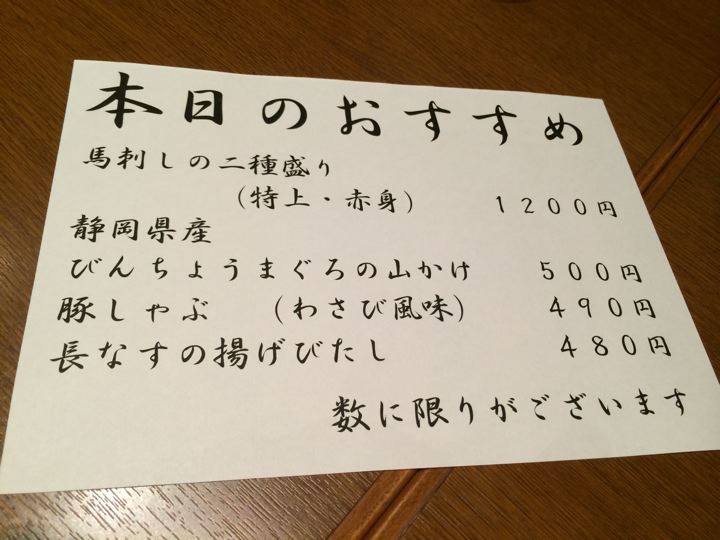 本日のおすすめ
馬刺しの二種盛り
（特上・赤身） １２００円
静岡県産
びんちょうまぐろの山かけ ５００円
豚しゃぶ （わさび風味） ４９０円
長なすの揚げびたし ４８０円
数に限りがございます